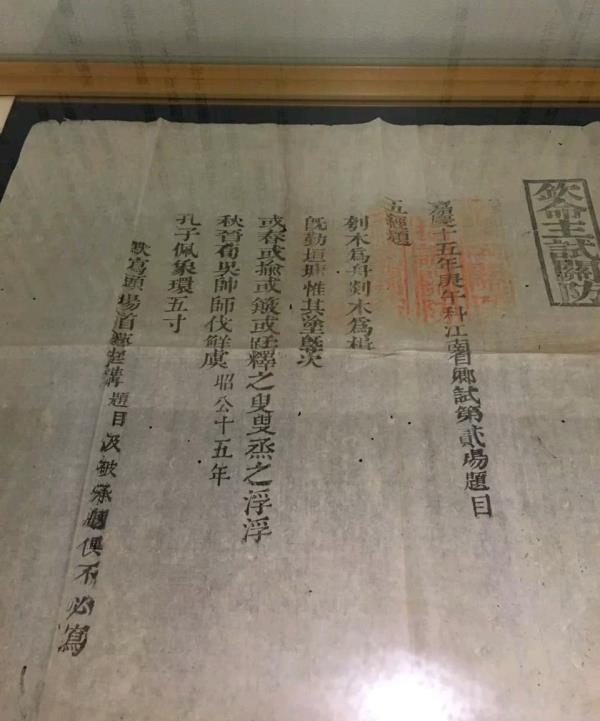 欽命主試關防
嘉慶十五年庚午科江南省鄉試第貳場題目
五經題
刳木為舟剡木為楫
旣勤垣墉惟其塗塈茨
或舂或揄或簸或蹂釋之叟叟烝之浮浮
秋晉荀吳帥師伐鮮虞 昭公十五年
孔子佩象環五寸
默寫頭場首藝起講題目及破承題俱不必寫